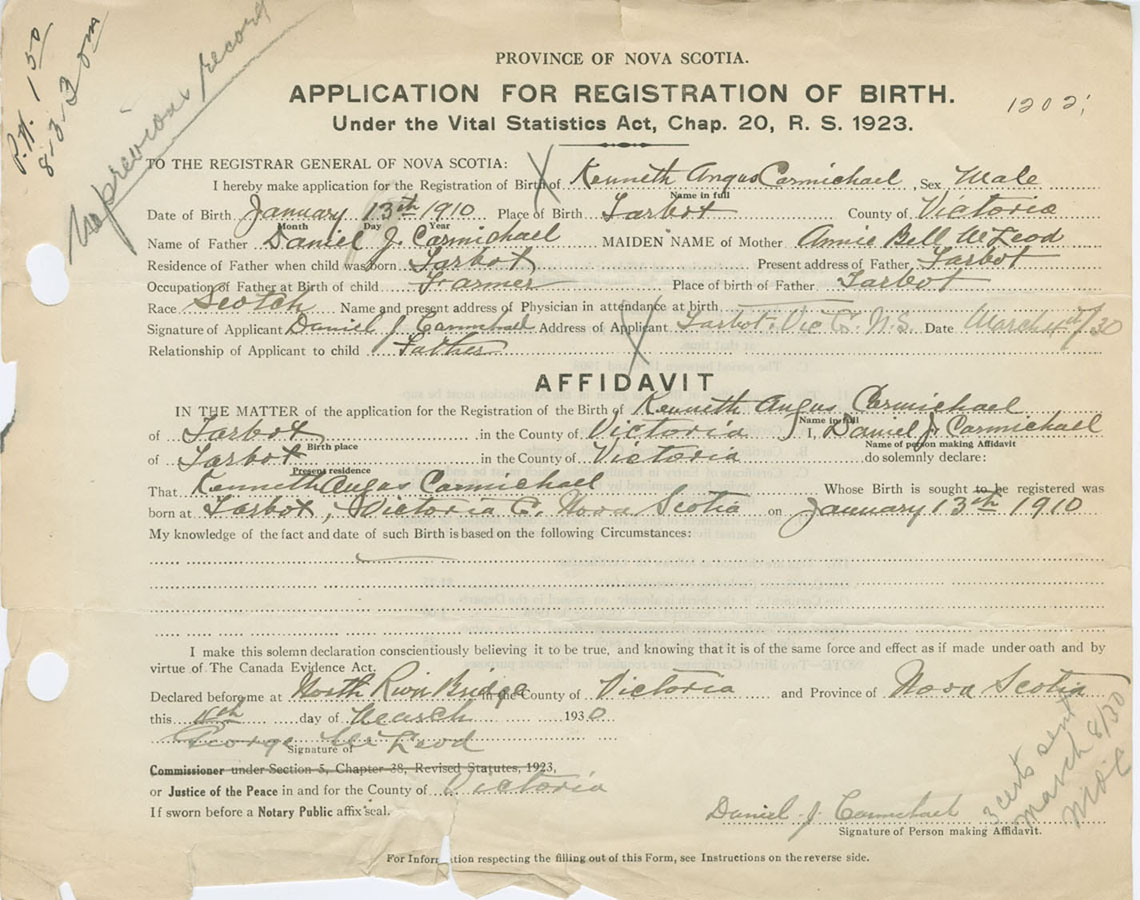 P.N. 1 50
8-3-30 m
No previous record
PROVINCE OF NOVA SCOTIA.
APPLICATION FOR REGISTRATION OF BIRTH.
1202
Under the Vital Statistics Act, Chap. 20, R. S. 1923.
TO THE REGISTRAR GENERAL OF NOVA SCOTIA:
I hereby make application for the Registration of Birth of Kenneth Angus Carmichael, Sex Male
Name in full
Date of Birth January 13th 1910 Place of Birth Tarbot County of Victoria
Month Day Year
Name of Father Daniel J. Carmichael MAIDEN NAME of Mother Annie Bell McLeod
Residence of Father when child was born Tarbot Present address of Father Tarbot
Occupation of Father at Birth of child Farmer Place of birth of Father Tarbot
Race Scotch Name and present address of Physician in attendance at birth
Signature of Applicant Daniel J Carmichael Address of Applicant Tarbot. Vic Co. N.S. Date March 4th/30
Relationship of Applicant to child Father
AFFIDAVIT
IN THE MATTER of the application for the Registration of the Birth of Kenneth Angus Carmichael
Name in full
of Tarbot in the County of Victoria I, Daniel J. Carmichael
Birth place Name of person making Affidavit
of Tarbot in the County of Victoria do solemnly declare:
Present residence
That Kenneth Angus Carmichael Whose Birth is sought to be registered was
born at Tarbot, Victoria C. Nova Scotia on January 13th 1910
My knowledge of the fact and date of such Birth is based on the following Circumstances:
I make this solemn declaration conscientiously believing it to be true, and knowing that it is of the same force and effect as if made under oath and by
virtue of The Canada Evidence Act.
Declared before me at North River Bridge in the County of Victoria and Province of Nova Scotia
this 4th day of March 1930
George McLeod
Signature of
Commissioner under Section 5, Chapter 38, Revised Statutes, 1923,
or Justice of the Peace in and for the County of Victoria
If sworn before a Notary Public affix seal.
3 certs sent
March 8/30
Daniel J. Carmichael
Signature of Person making Affidavit.
For Information respecting the filling out of this Form, see Instructions on the reverse side.